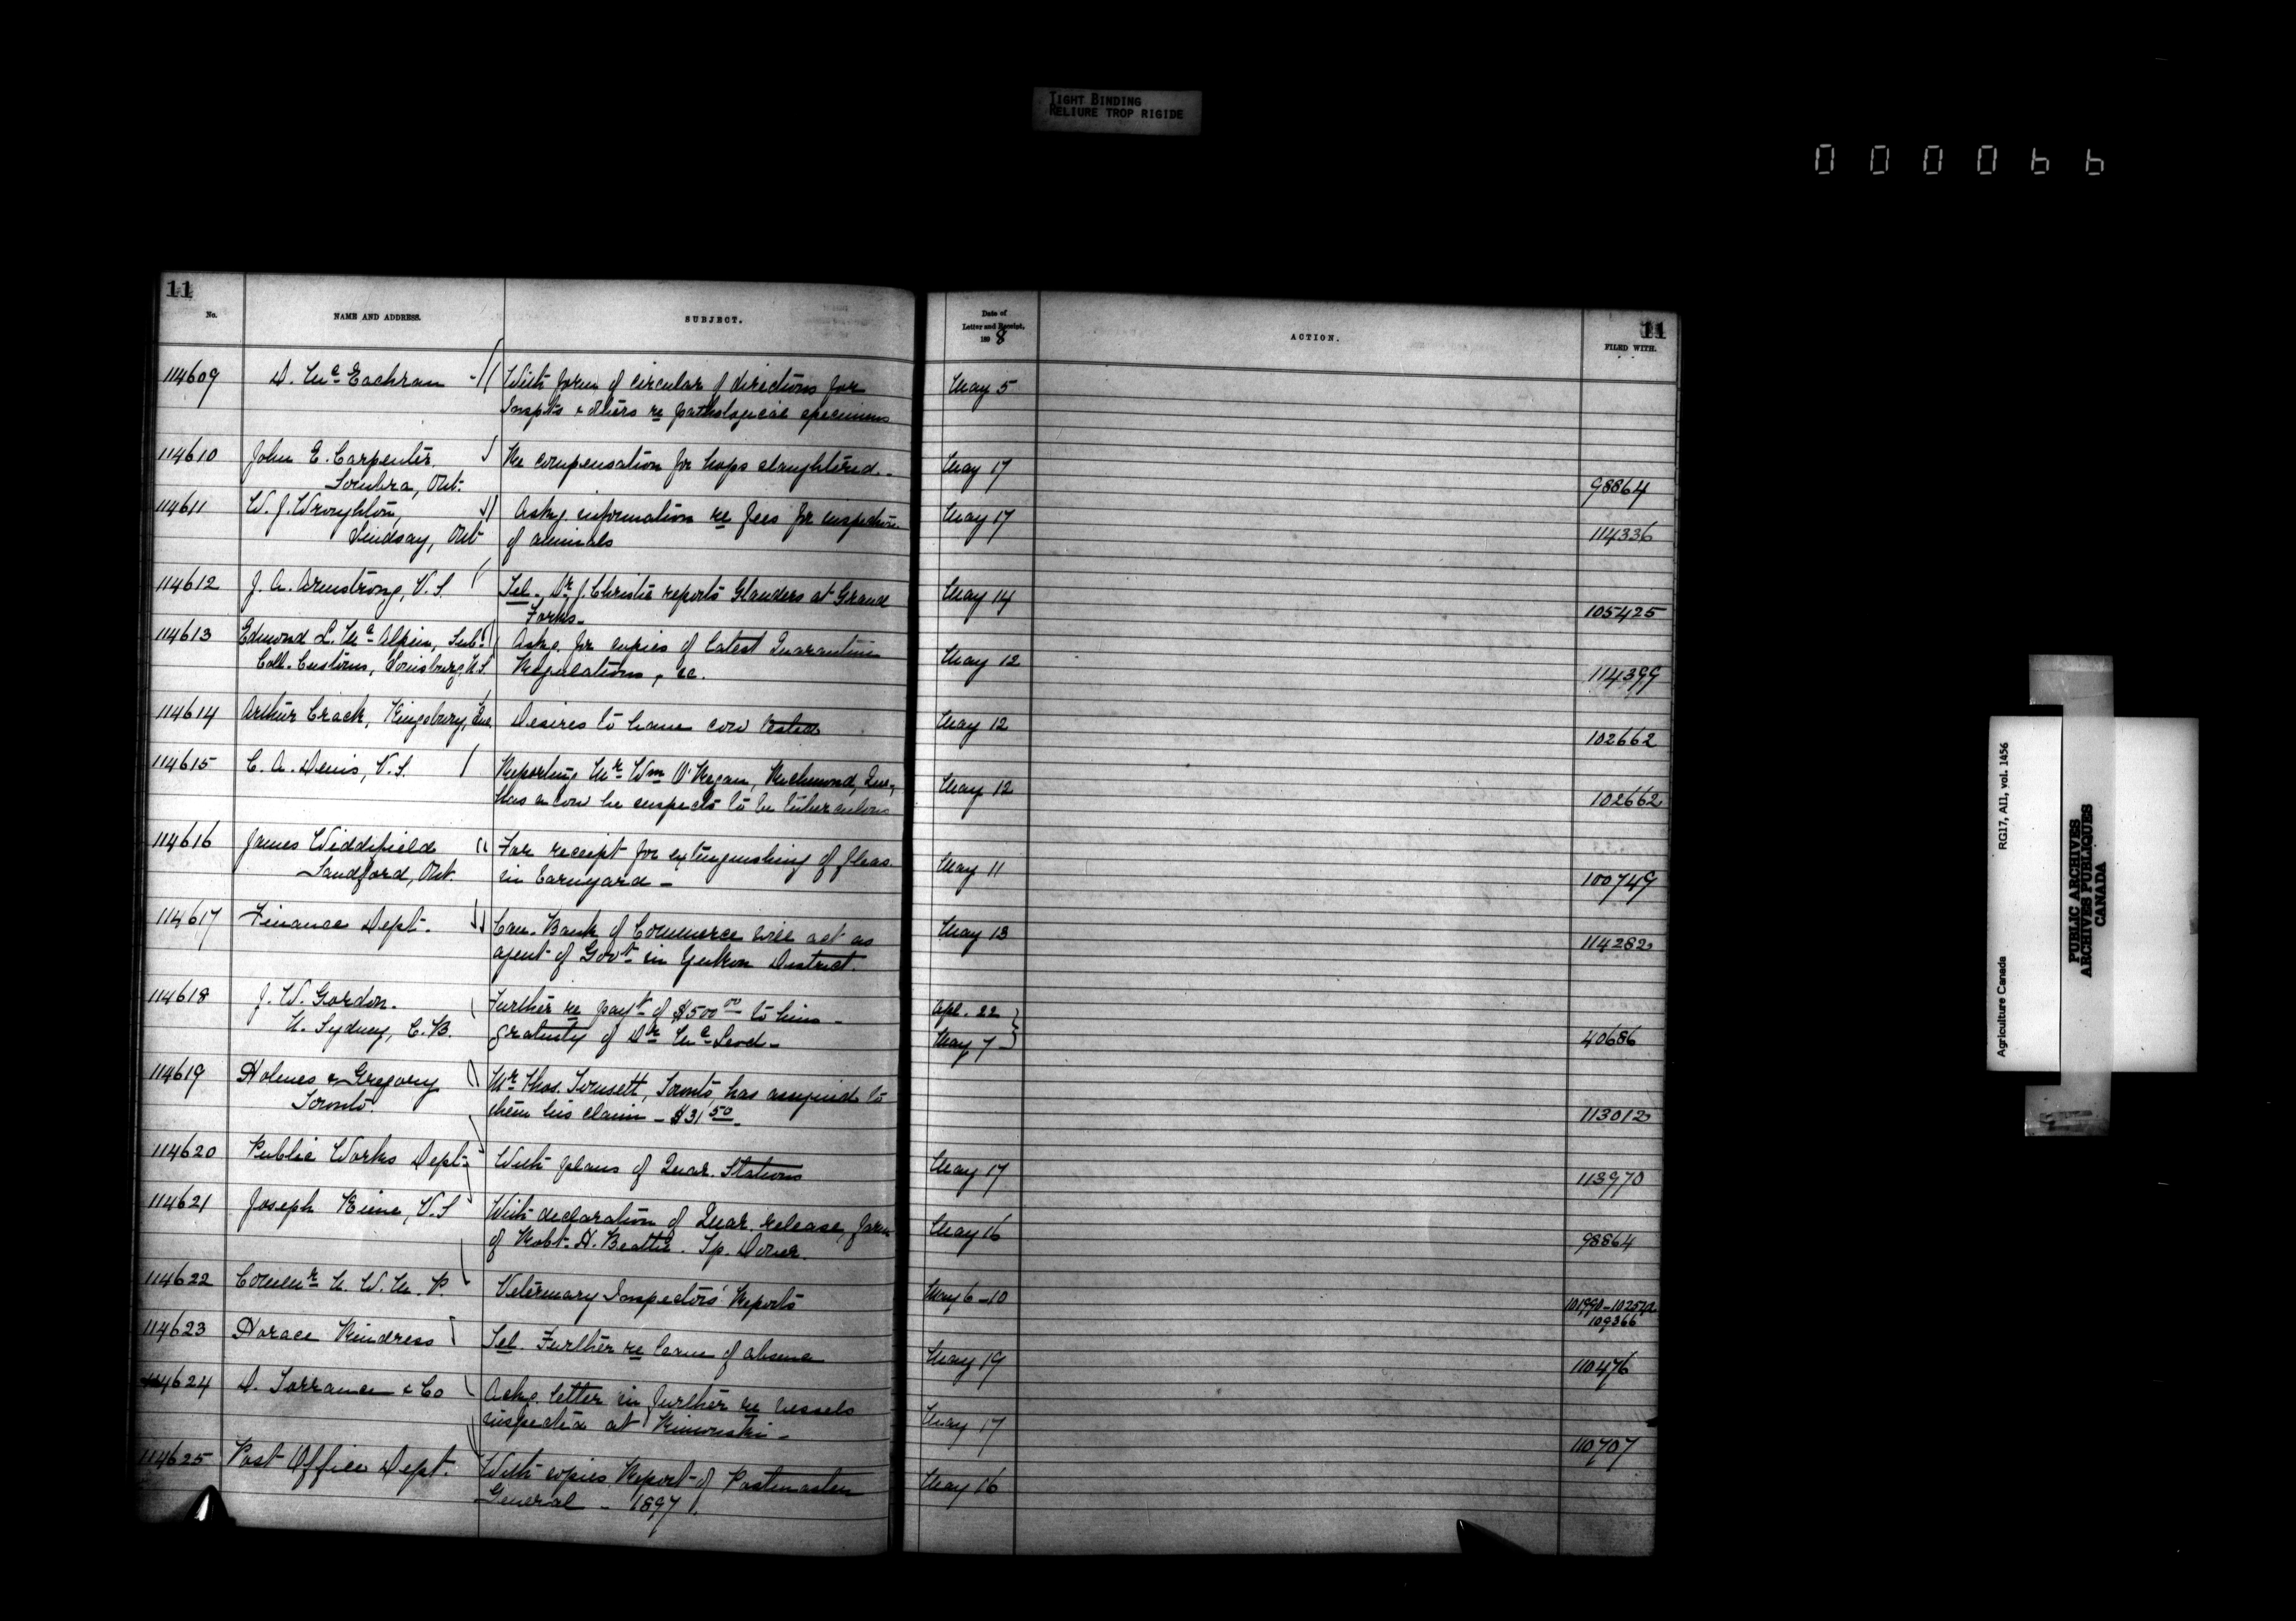 TIGHT BINDING
RELIURE TROP RIGIDE
000066
11
No.
NAME AND ADDRESS.
SUBJECT.
Date of
Letter and Receipt,
1898
ACTION.
11
FILED WITH.
114609 D. McEachran With form of circular of directions for May 5
Inspts & others re pathological specimens
114610 John E. Carpenter, Re compensation for hogs slaughtered. May 17
Sombra, Ont. 98864
114611 W. J. Wroughton, Askg. information re fees for inspection May 17
Lindsay, Ont of animals 114336
114612 J. A. Armstrong, V.S. Tel. Dr. J. Christie reports Glanders at Grand May 14
Forks. 105425
114613 Edmond L. McAlpin, Sub. Askg. for copies of latest Quarantine May 12
Coll. Customs, Louisburg, N.S. Regulations, &c. 114399
114614 Arthur Crack, Kingsbury, Que. Desires to have cow tested May 12
102662
114615 C. A. Denis, V.S. Reporting Mr Wm O'Regan, Richmond, Que., May 12
has a cow he suspects to be tuberculous 102662
114616 James Widdifield For receipt for extinguishing of fleas May 11
Sandford, Ont. in barnyard - 100749
114617 Finance Dept. Can. Bank of Commerce will act as May 13
agent of Govt in Yukon District. 114282
114618 J. W. Gordon. Further re payt of $500 00 to him - Apl. 22
N. Sydney, C.B. gratuity of Dr McLeod - May 7 40686
114619 Holmes & Gregory Mr Thos. , Toronto, has assigned to
Toronto. them his claim - $31 50. 113012
114620 Public Works Dept. With plans of Quar. Stations May 17
113970
114621 Joseph Kime, V.S With declaration of Quar. release, farm May 16
of Robt. H. Beattie. Tp. Dover. 98864
114622 Commr N. W. M. P. Veterinary Inspectors' Reports May 6-10
109366
114623 Horace Kindress Tel. Further re leave of absence May 19
110476
114624 D. Torrance & Co Askg. letter in further re vessels May 17
inspected at Rimouski - 110707
114625 Post Office Dept. With copies Report of Postmaster May 16
General - 1897.
Agriculture Canada
RG17, AI1, vol. 1456
PUBLIC ARCHIVES
ARCHIVES PUBLIQUES
CANADA